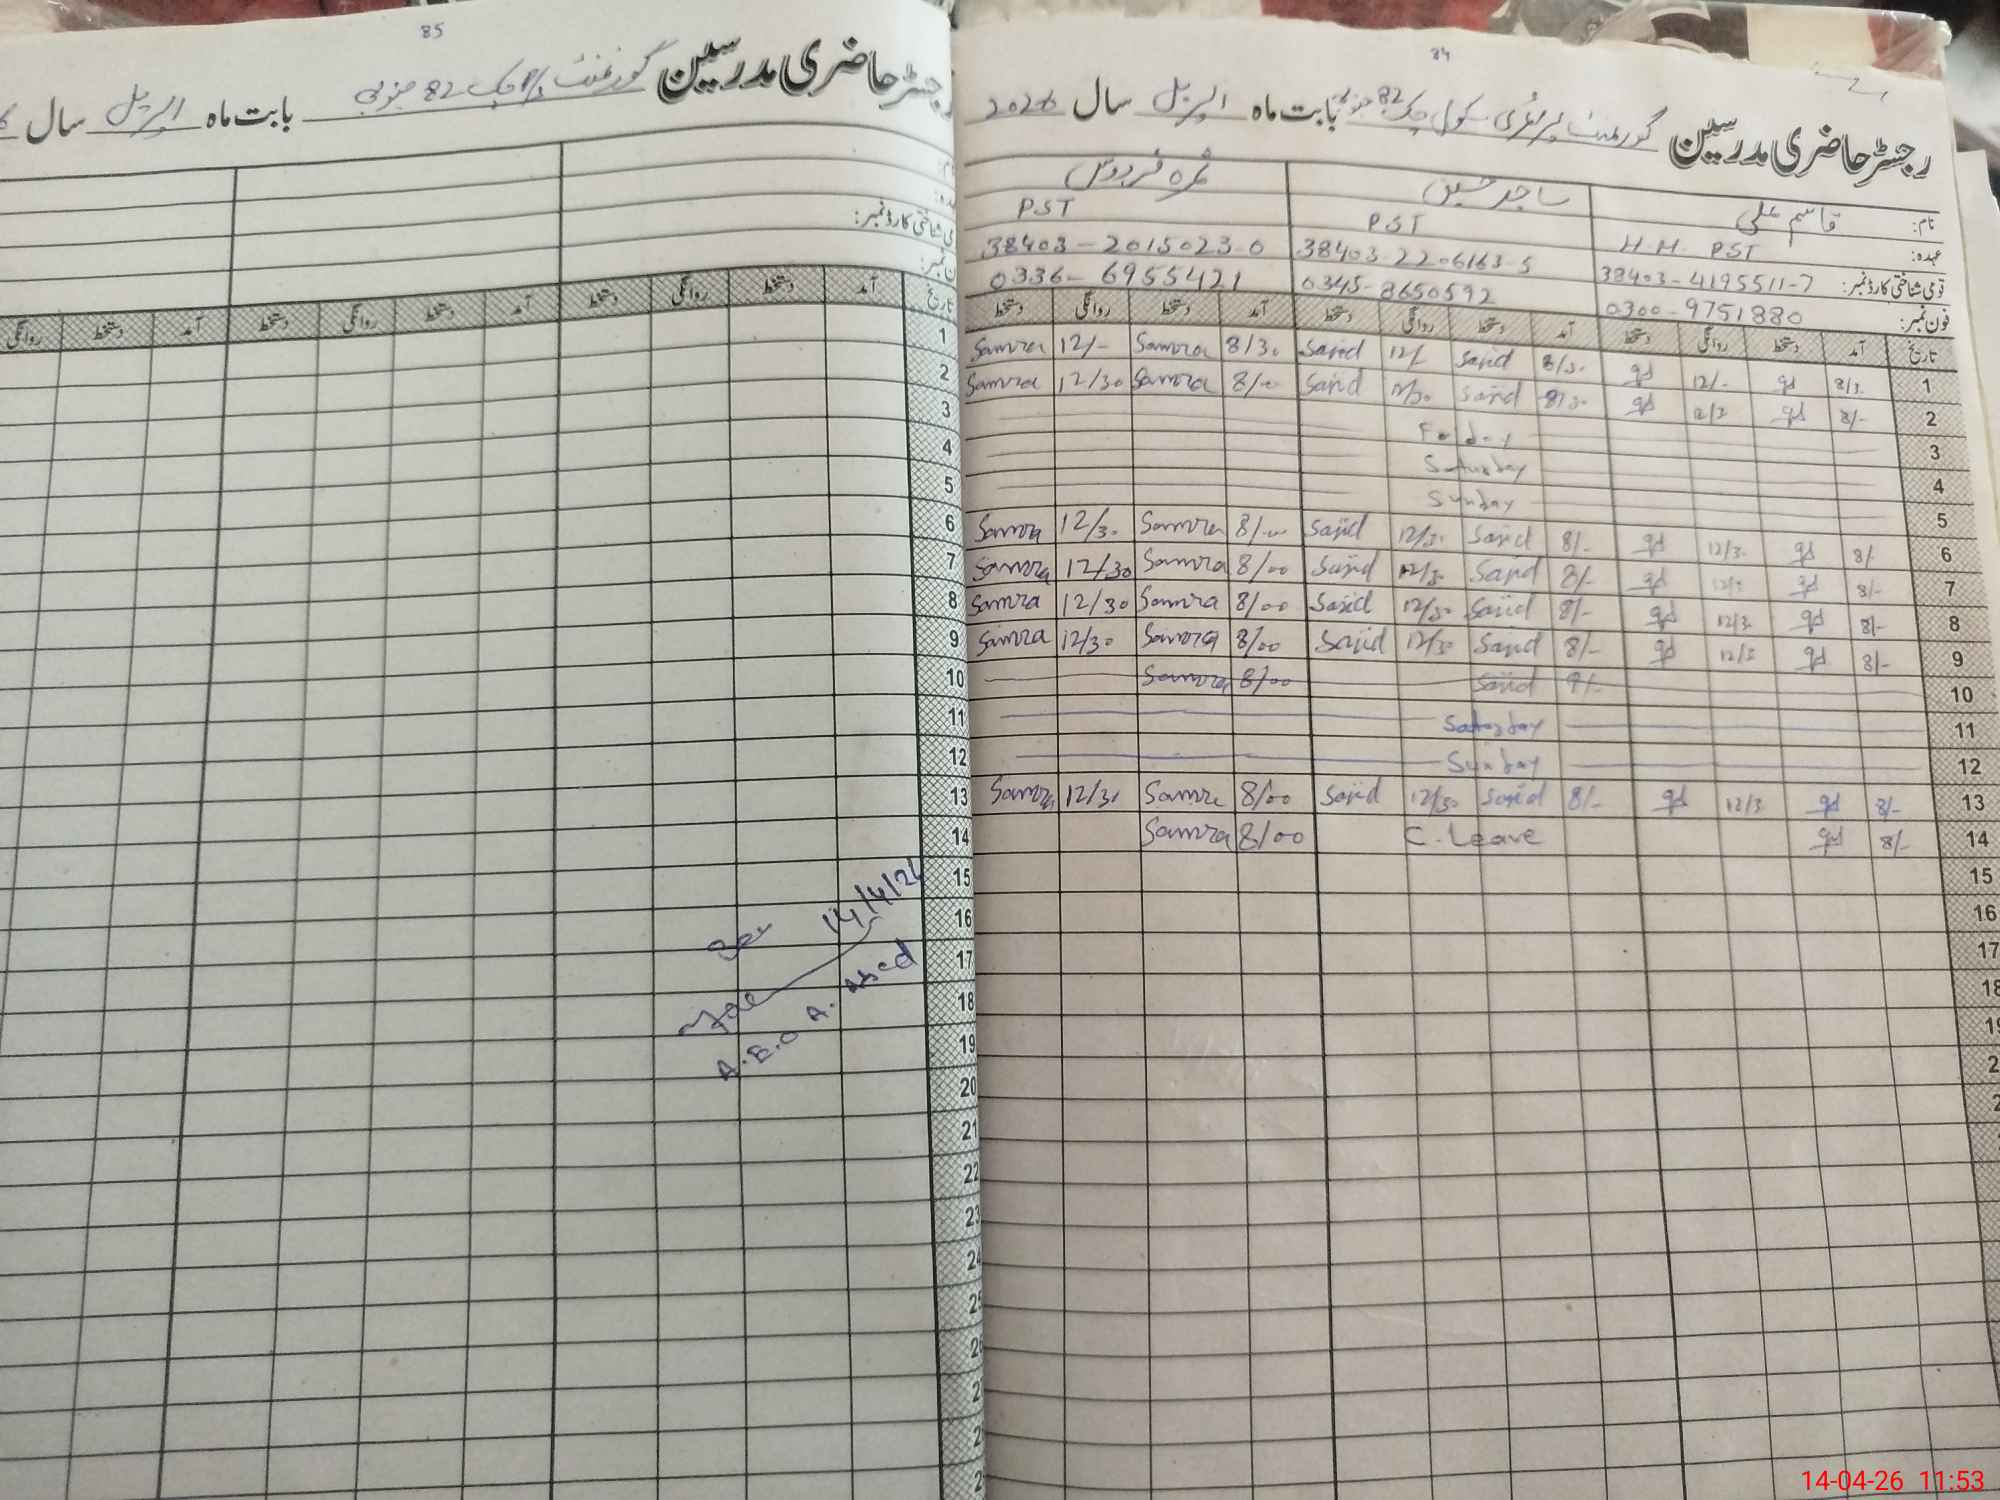 84
رجسٹر حاضری مدرسین گورنمنٹ پرائمری سکول چک 82 جنوبی بابت ماہ اپریل سال 2026
نام: قاسم علی ساجد حسین ثمرہ فردوس
عہدہ: H.M. PST PST PST
قومی شناختی کارڈ نمبر: 38403-4195511-7 38403-2206163-5 38403-2015023-0
فون نمبر: 0300-9751880 0345-8650592 0336-6955421
تاریخ آمد دستخط روانگی دستخط آمد دستخط روانگی دستخط آمد دستخط روانگی دستخط
1 8/3 12/- 8/30 Sajid 12/- Sajid 8/30 Samra 12/- Samra
2 8/- 12/3 8/30 Sajid 12/30 Sajid 8/- Samra 12/30 Samra
3 Friday
4 Saturday
5 Sunday
6 8/- 12/3 8/- Sajid 12/30 Sajid 8/00 Samra 12/30 Samra
7 8/- 12/3 8/- Sajid 12/30 Sajid 8/00 Samra 12/30 Samra
8 8/- 12/3 8/- Sajid 12/30 Sajid 8/00 Samra 12/30 Samra
9 8/- 12/3 8/- Sajid 12/30 Sajid 8/00 Samra 12/30 Samra
10 Sajid 8/00 Samra
11 Saturday
12 Sunday
13 8/- 12/3 8/- Sajid 12/30 Sajid 8/00 Samra 12/30 Samra
14 8/- C. Leave 8/00 Samra
15
16
17
18
19
85
رجسٹر حاضری مدرسین گورنمنٹ چک 82 جنوبی بابت ماہ اپریل سال
قومی شناختی کارڈ نمبر:
تاریخ آمد دستخط روانگی دستخط آمد دستخط روانگی دستخط آمد دستخط روانگی
1
2
3
4
5
6
7
8
9
10
11
12
13
14
15
16
17
18
19
20
21
22
23
24
25
26
14/4/26
A.E.O
14-04-26 11:53